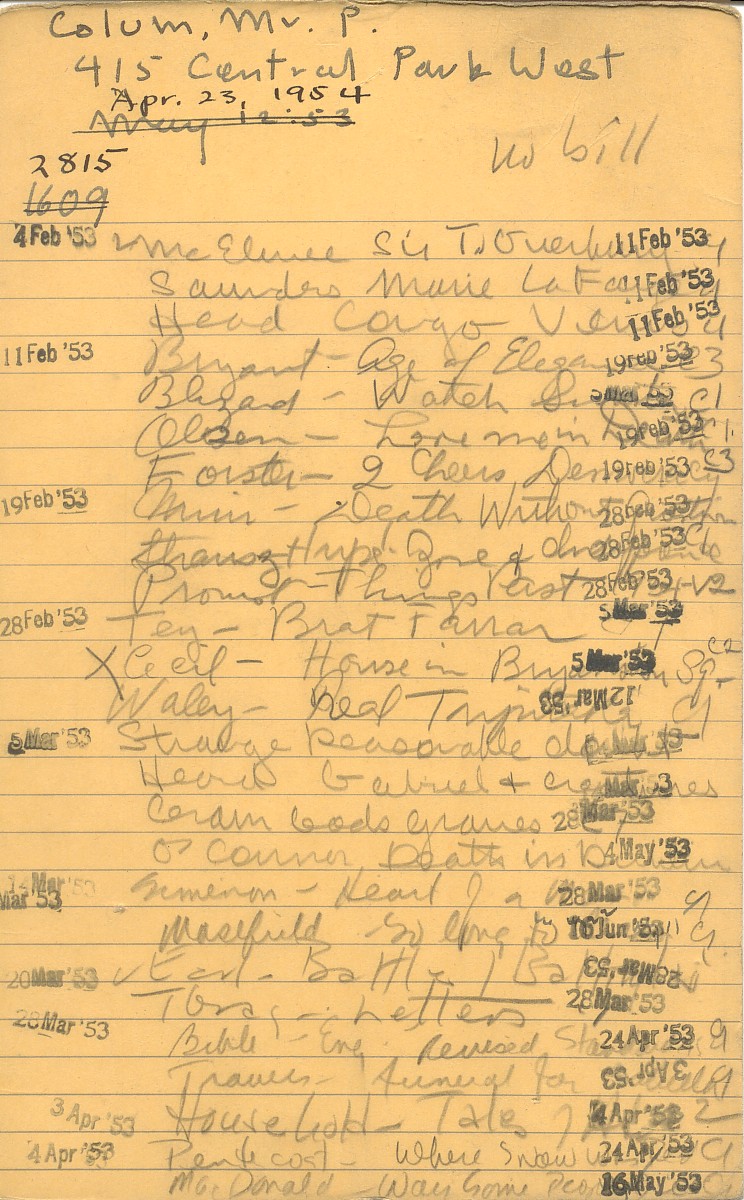 Colum, Mr. P.
415 Central Park West
Apr. 23, 1954
May 12 '53
no bill
2815
1609
4 Feb '53 McElwee Sir T. Overbury 11 Feb '53 c1
Saunders Marie La Farge 11 Feb '53
Head Congo Venus 11 Feb '53
11 Feb '53 Bryant - Age of Elegance 19 Feb '53 c3
Blizard - Watch Mar '53 c1
Olsen - Love me in 19 Feb '53
Forster - 2 Cheers Democracy 19 Feb '53 c3
19 Feb '53 - Death Without 28 Feb '53
Strausz Hupe - Zone of 28 Feb '53
Proust - Things Past 28 Feb '53
28 Feb '53 Tey - Brat Farrar 5 Mar '53
X Cecil - House in Bryanston Sq. 5 Mar '53 c2
Waley - Real Tripitaka 12 Mar '53 c1
5 Mar '53 Strange Reasonable Mar '53
Heard Gabriel + creatures Mar '53
Ceram Gods Graves 28 Mar '53
O'Connor Death in 4 May '53
14 Mar '53 Simenon - Heart of a 28 Mar '53 c1
Mar '53 Masefield So long to 16 Jun '53 c1
20 Mar '53 Earl - Battle 28 Mar '53
Letters 28 Mar '53
28 Mar '53 Bible - Eng Revised 24 Apr '53 c1
Travers - Funeral for 3 Apr '53 c1
3 Apr '53 Household - Tales of 4 Apr '53 2
4 Apr '53 Pentecost Where Snow was 24 Apr '53 c1
MacDonald - Way Some People 16 May '53